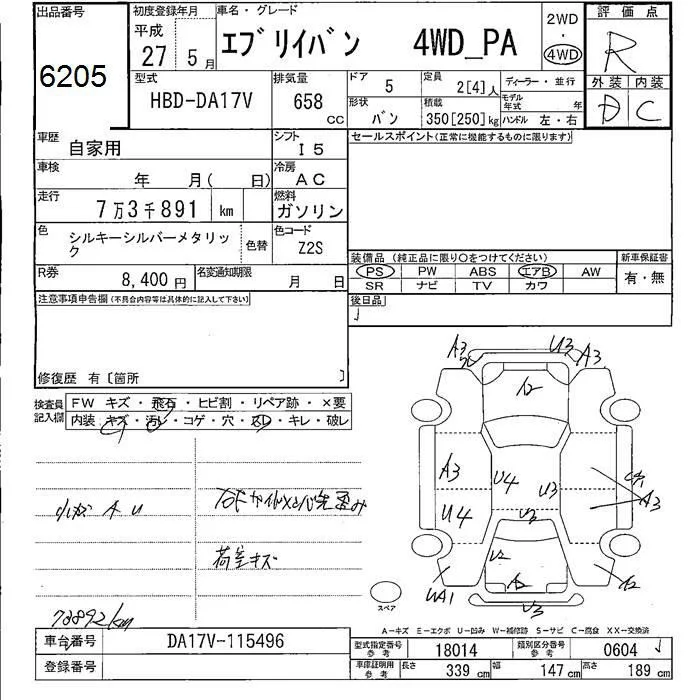 出品番号 初度登録年月 車名・グレード 2WD 評価点
6205 平成 27 5月 エブリイバン 4WD_PA ・ 4WD R
型式 排気量 ドア 5 定員 2[4]人 ディーラー・並行 外装 内装
HBD-DA17V 658 CC 形状 バン 積載 350[250]kg モデル年式 年 ハンドル 左・右 D C
車歴 自家用 シフト I5 セールスポイント(正常に機能するものに限ります)
車検 年 月( 日) 冷房 AC
走行 7万3千891 km 燃料 ガソリン
色 シルキーシルバーメタリック 色替 色コード Z2S
装備品 (純正品に限り○をつけてください) 新車保証書
PS PW ABS エアB AW 有・無
SR ナビ TV カワ
R券 8,400円 名変通知期限 月 日
後日品
注意事項申告欄 (不具合内容等は具体的に記入して下さい)
修復歴 有〔箇所 〕
検査員記入欄 FW キズ・飛石・ヒビ割・リペア跡・×要
内装 キズ・汚レ・コゲ・穴・スレ・キレ・破レ
小キズ A U
荷室キズ
73892km
A3 U3 A3
A2
A3 U4 U3
U4 U3 A3
U2
A2 A2
UA1 U3
スペア
A-キズ E-エクボ U-凹み W-補修跡 S-サビ C-腐食 XX-交換済
車台番号 DA17V-115496 型式指定番号 参考 18014 類別区分番号 参考 0604
登録番号 車庫証明用 参考 長さ 339 cm 幅 147 cm 高さ 189 cm